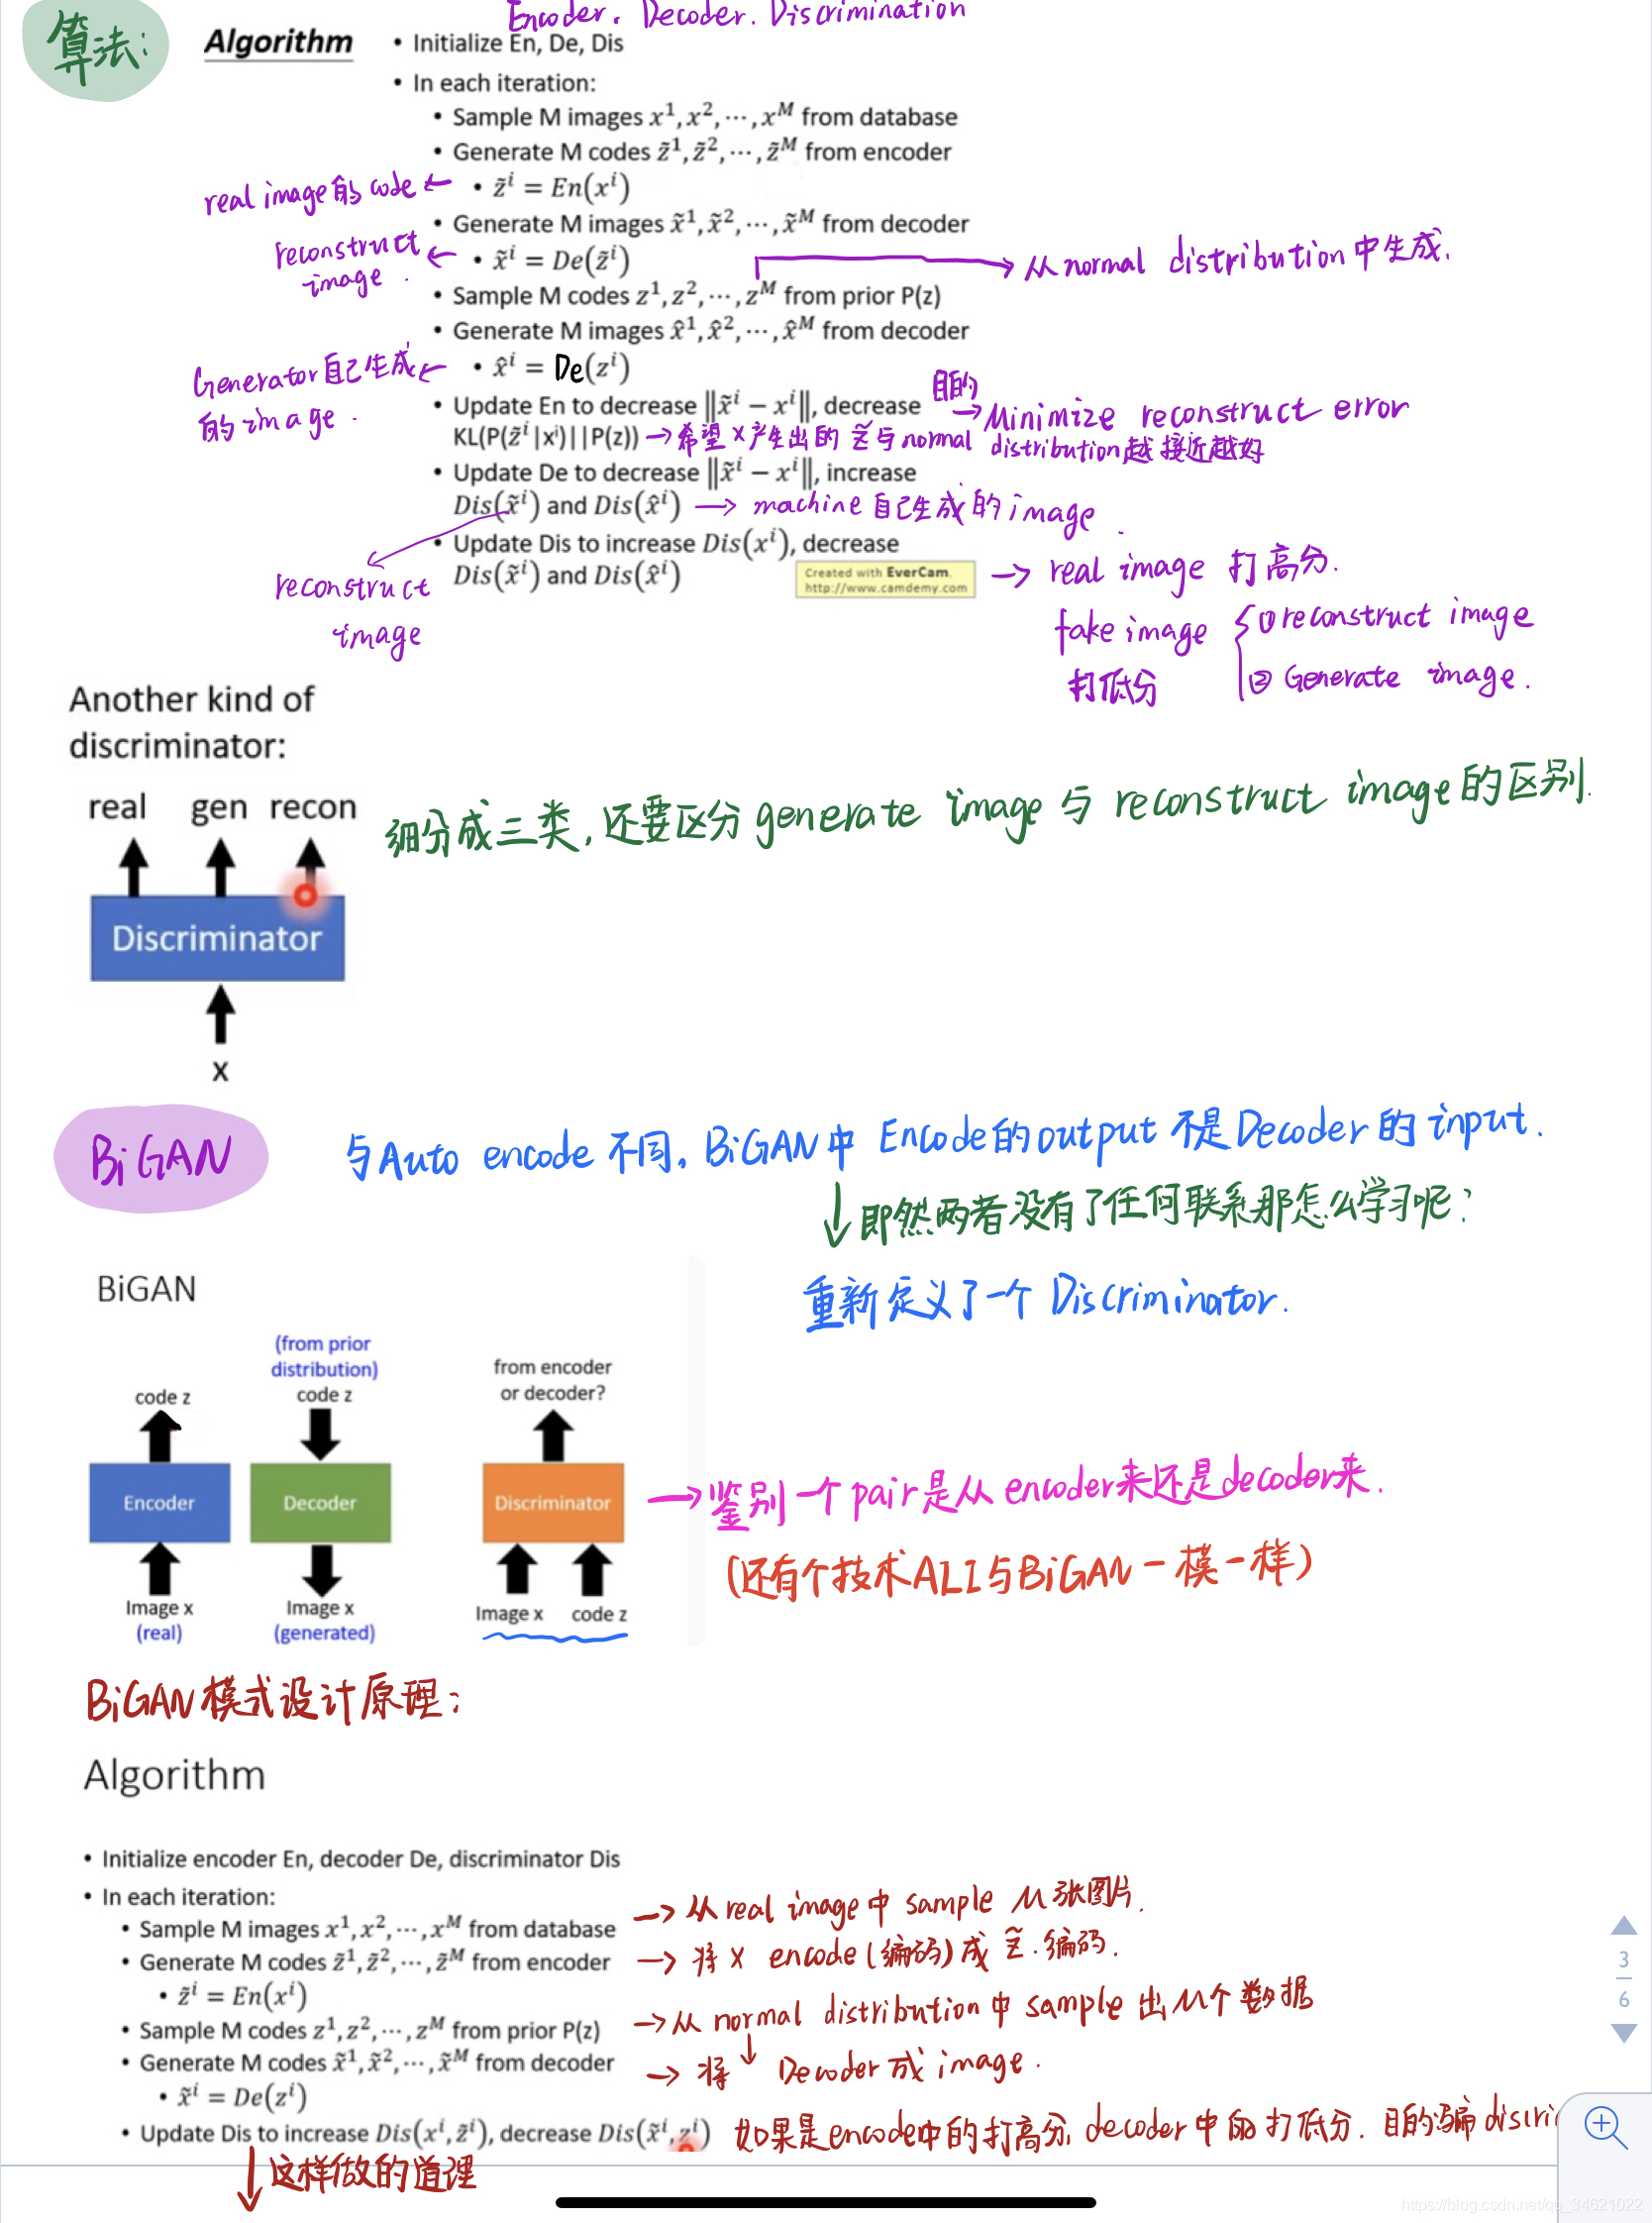 算法:
Encoder. Decoder. Discrimination
Algorithm
• Initialize En, De, Dis
• In each iteration:
• Sample M images x¹, x², ⋯, xᴹ from database
• Generate M codes z̃¹, z̃², ⋯, z̃ᴹ from encoder
real image的code ← • z̃ⁱ = En(xⁱ)
• Generate M images x̃¹, x̃², ⋯, x̃ᴹ from decoder
reconstruct image. ← • x̃ⁱ = De(z̃ⁱ)
→ 从normal distribution中生成.
• Sample M codes z¹, z², ⋯, zᴹ from prior P(z)
• Generate M images x̂¹, x̂², ⋯, x̂ᴹ from decoder
Generator自己生成的image. ← • x̂ⁱ = De(zⁱ)
• Update En to decrease ‖x̃ⁱ − xⁱ‖, decrease
目的 → Minimize reconstruct error
KL(P(z̃ⁱ|xⁱ)||P(z)) → 希望x产生出的z̃与normal distribution越接近越好
• Update De to decrease ‖x̃ⁱ − xⁱ‖, increase
Dis(x̃ⁱ) and Dis(x̂ⁱ) → machine自己生成的image.
• Update Dis to increase Dis(xⁱ), decrease
Dis(x̃ⁱ) and Dis(x̂ⁱ)
Created with EverCam.
http://www.camdemy.com
→ real image 打高分.
reconstruct
image
fake image
打低分
① reconstruct image
② Generate image.
Another kind of
discriminator:
real gen recon
细分成三类, 还要区分generate image与reconstruct image的区别.
Discriminator
x
BiGAN
与Auto encode不同, BiGAN中 Encode的output不是Decoder的input.
↓ 即然两者没有了任何联系那怎么学习呢?
重新定义了一个Discriminator.
BiGAN
code z
(from prior
distribution)
code z
from encoder
or decoder?
Encoder
Decoder
Discriminator
→ 鉴别一个pair是从encoder来还是decoder来.
(还有个技术ALI与BiGAN一模一样)
Image x
(real)
Image x
(generated)
Image x code z
BiGAN模式设计原理:
Algorithm
• Initialize encoder En, decoder De, discriminator Dis
• In each iteration:
• Sample M images x¹, x², ⋯, xᴹ from database → 从real image中sample M张图片.
• Generate M codes z̃¹, z̃², ⋯, z̃ᴹ from encoder → 将x encode(编码)成z̃.编码.
• z̃ⁱ = En(xⁱ)
• Sample M codes z¹, z², ⋯, zᴹ from prior P(z) → 从normal distribution中sample出M个数据
• Generate M codes x̃¹, x̃², ⋯, x̃ᴹ from decoder → 将↓Decoder成image.
• x̃ⁱ = De(zⁱ)
• Update Dis to increase Dis(xⁱ, z̃ⁱ), decrease Dis(x̃ⁱ, zⁱ) 如果是encode中的打高分, decoder中的打低分. 目的骗discri
↓ 这样做的道理
3
6
https://blog.csdn.net/qq_34621022